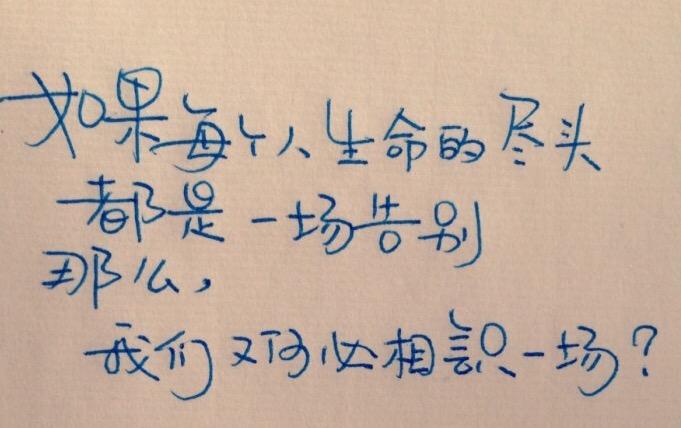 如果每个人生命的尽头
都是一场告别
那么，
我们又何必相识一场？